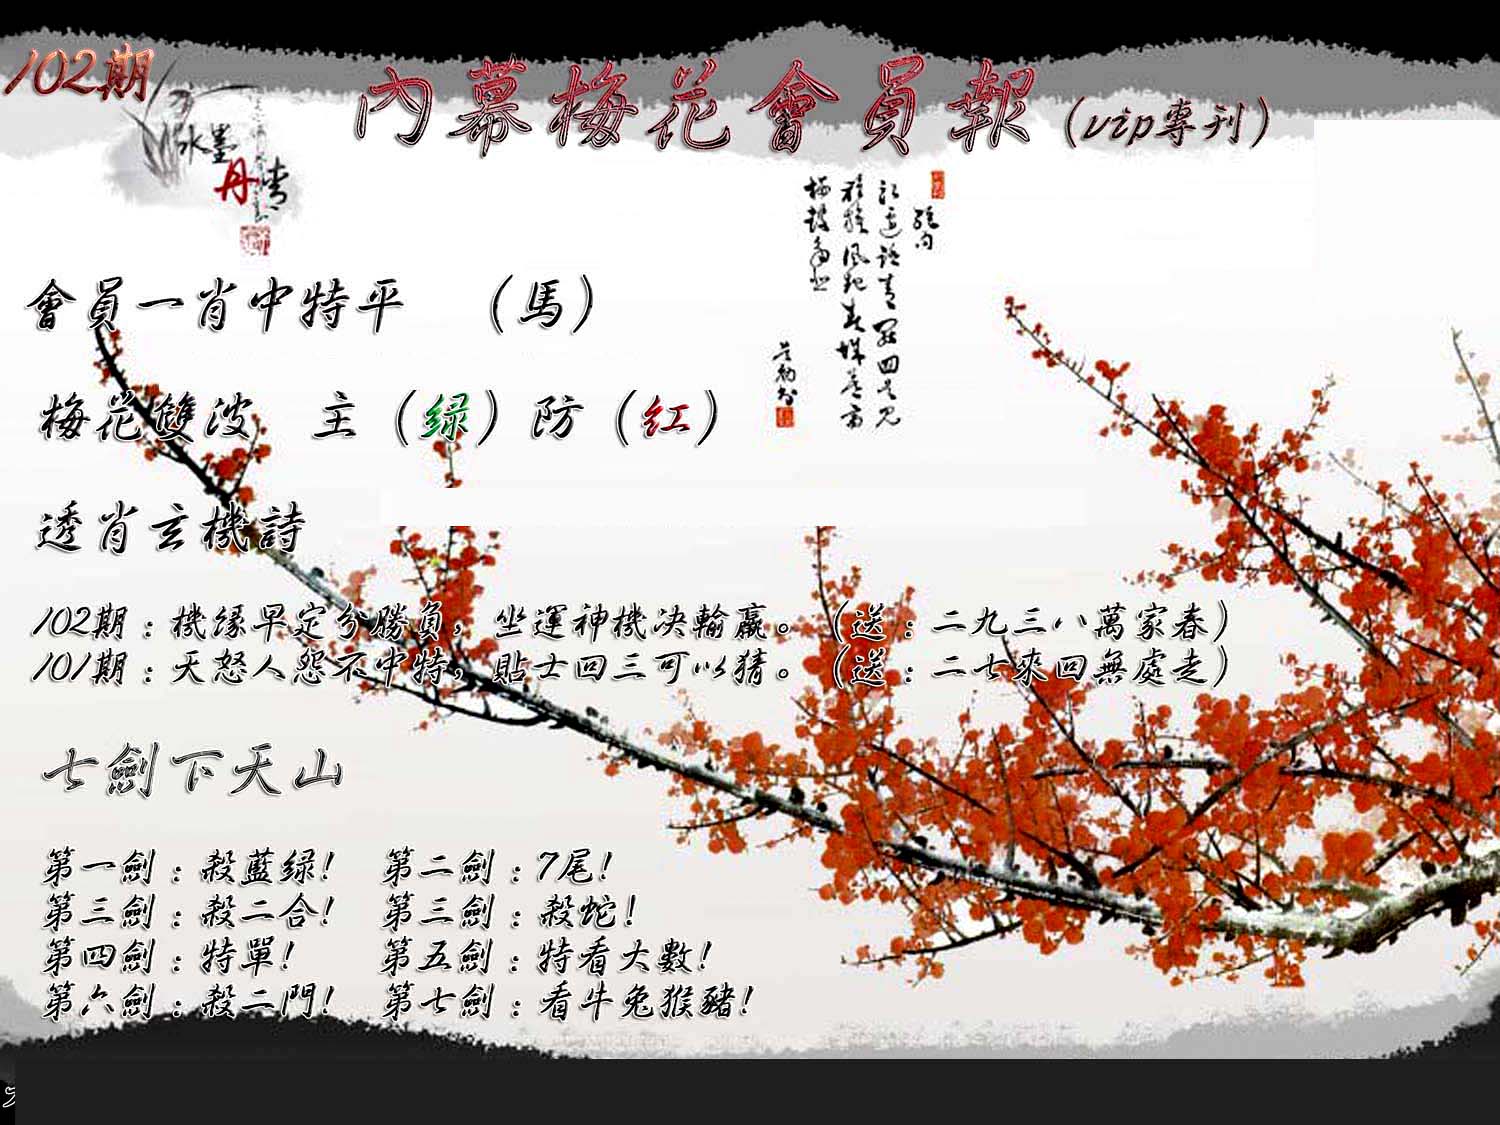 102期
內幕梅花會員報（vip專刊）
水墨
丹青
絕句
會員一肖中特平　（馬）
梅花雙波　主（绿）防（红）
透肖玄機詩
102期：機缘早定分勝負，坐運神機决輸贏。（送：二九三八萬家春）
101期：天怒人怨不中特，貼士回三可以猜。（送：二七來回無處走）
七劍下天山
第一劍：殺藍绿！　第二劍：7尾！
第三劍：殺二合！　第三劍：殺蛇！
第四劍：特單！　第五劍：特看大數！
第六劍：殺二門！　第七劍：看牛兔猴豬！